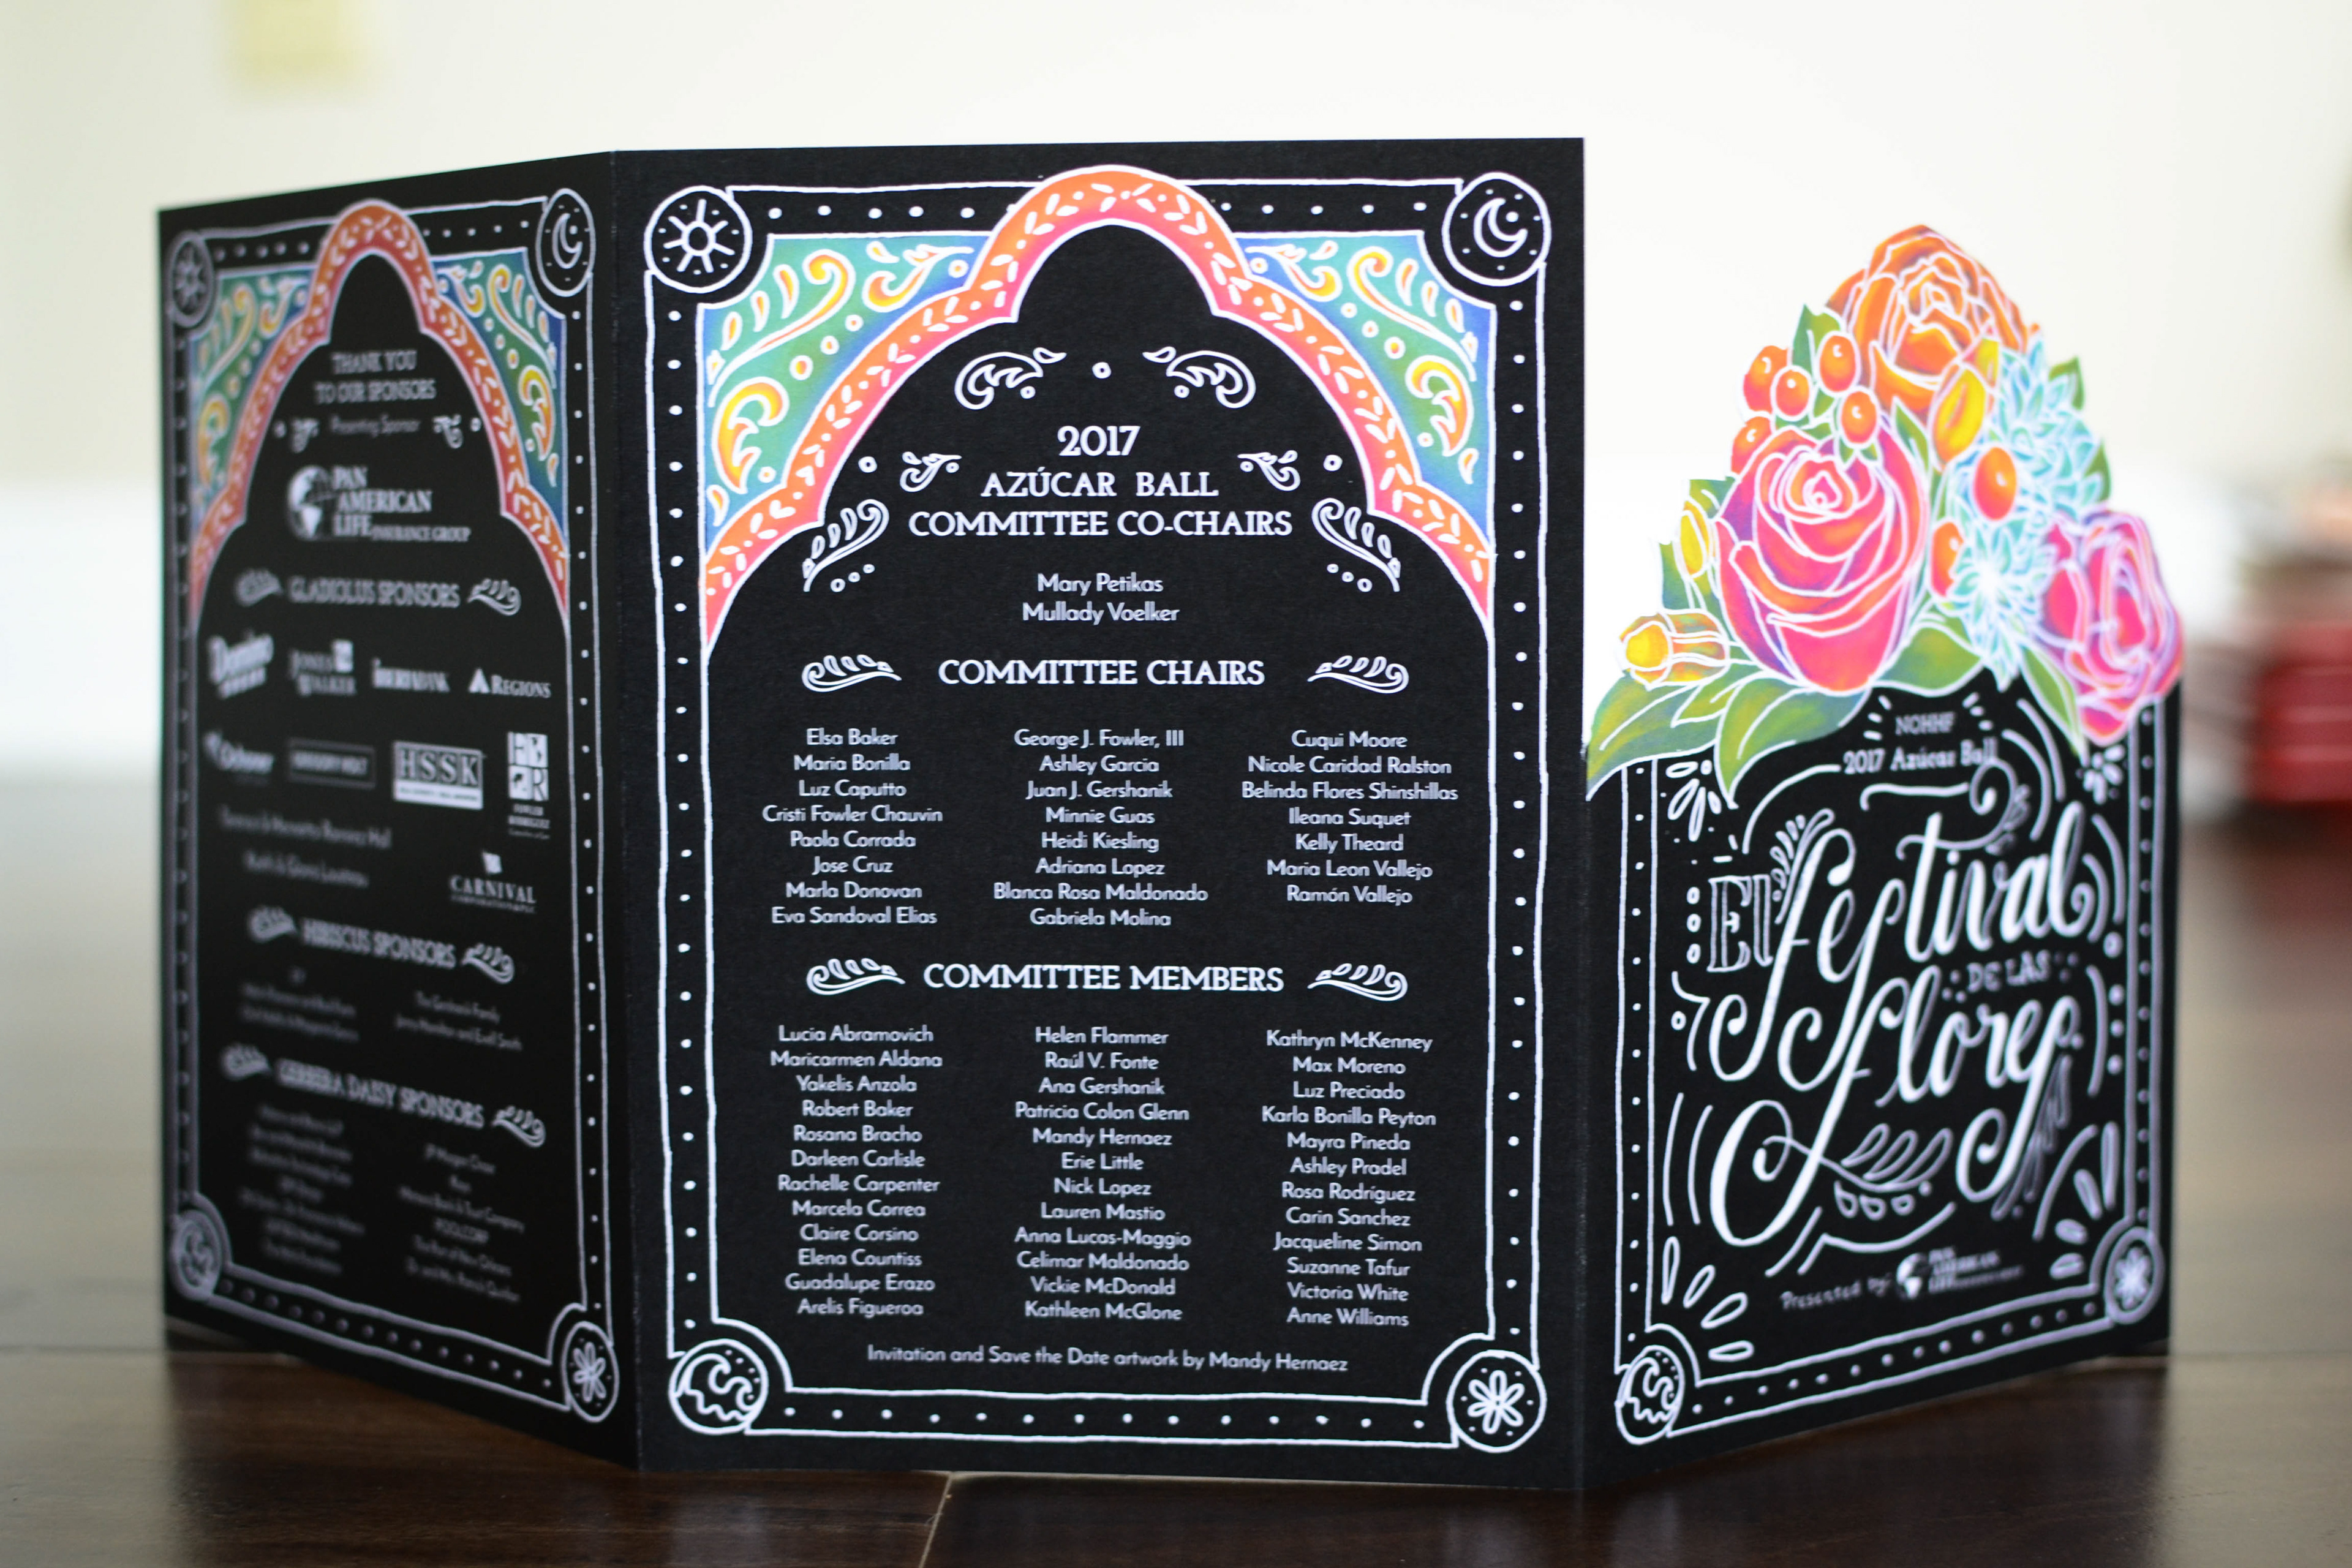 THANK YOU
TO OUR SPONSORS
Presenting Sponsor
PAN
AMERICAN
LIFE INSURANCE GROUP
GLADIOLUS SPONSORS
Domino
JONES
WALKER
IBERIABANK
REGIONS
Ochsner
HSSK
FOWLER
RODRIGUEZ
CARNIVAL
CORPORATION & PLC
HIBISCUS SPONSORS
GERBERA DAISY SPONSORS
2017
AZÚCAR BALL
COMMITTEE CO-CHAIRS
Mary Petikas
Mullady Voelker
COMMITTEE CHAIRS
Elsa Baker
Maria Bonilla
Luz Caputto
Cristi Fowler Chauvin
Paola Corrada
Jose Cruz
Marla Donovan
Eva Sandoval Elias
George J. Fowler, III
Ashley Garcia
Juan J. Gershanik
Minnie Guas
Heidi Kiesling
Adriana Lopez
Blanca Rosa Maldonado
Gabriela Molina
Cuqui Moore
Nicole Caridad Ralston
Belinda Flores Shinshillas
Ileana Suquet
Kelly Theard
Maria Leon Vallejo
Ramón Vallejo
COMMITTEE MEMBERS
Lucia Abramovich
Maricarmen Aldana
Yakelis Anzola
Robert Baker
Rosana Bracho
Darleen Carlisle
Rachelle Carpenter
Marcela Correa
Claire Corsino
Elena Countiss
Guadalupe Erazo
Arelis Figueroa
Helen Flammer
Raúl V. Fonte
Ana Gershanik
Patricia Colon Glenn
Mandy Hernaez
Erie Little
Nick Lopez
Lauren Mastio
Anna Lucas-Maggio
Celimar Maldonado
Vickie McDonald
Kathleen McGlone
Kathryn McKenney
Max Moreno
Luz Preciado
Karla Bonilla Peyton
Mayra Pineda
Ashley Pradel
Rosa Rodríguez
Carin Sanchez
Jacqueline Simon
Suzanne Tafur
Victoria White
Anne Williams
Invitation and Save the Date artwork by Mandy Hernaez
NOHHF
2017 Azúcar Ball
El festival
DE LAS
flores
Presented by:
PAN
AMERICAN
LIFE